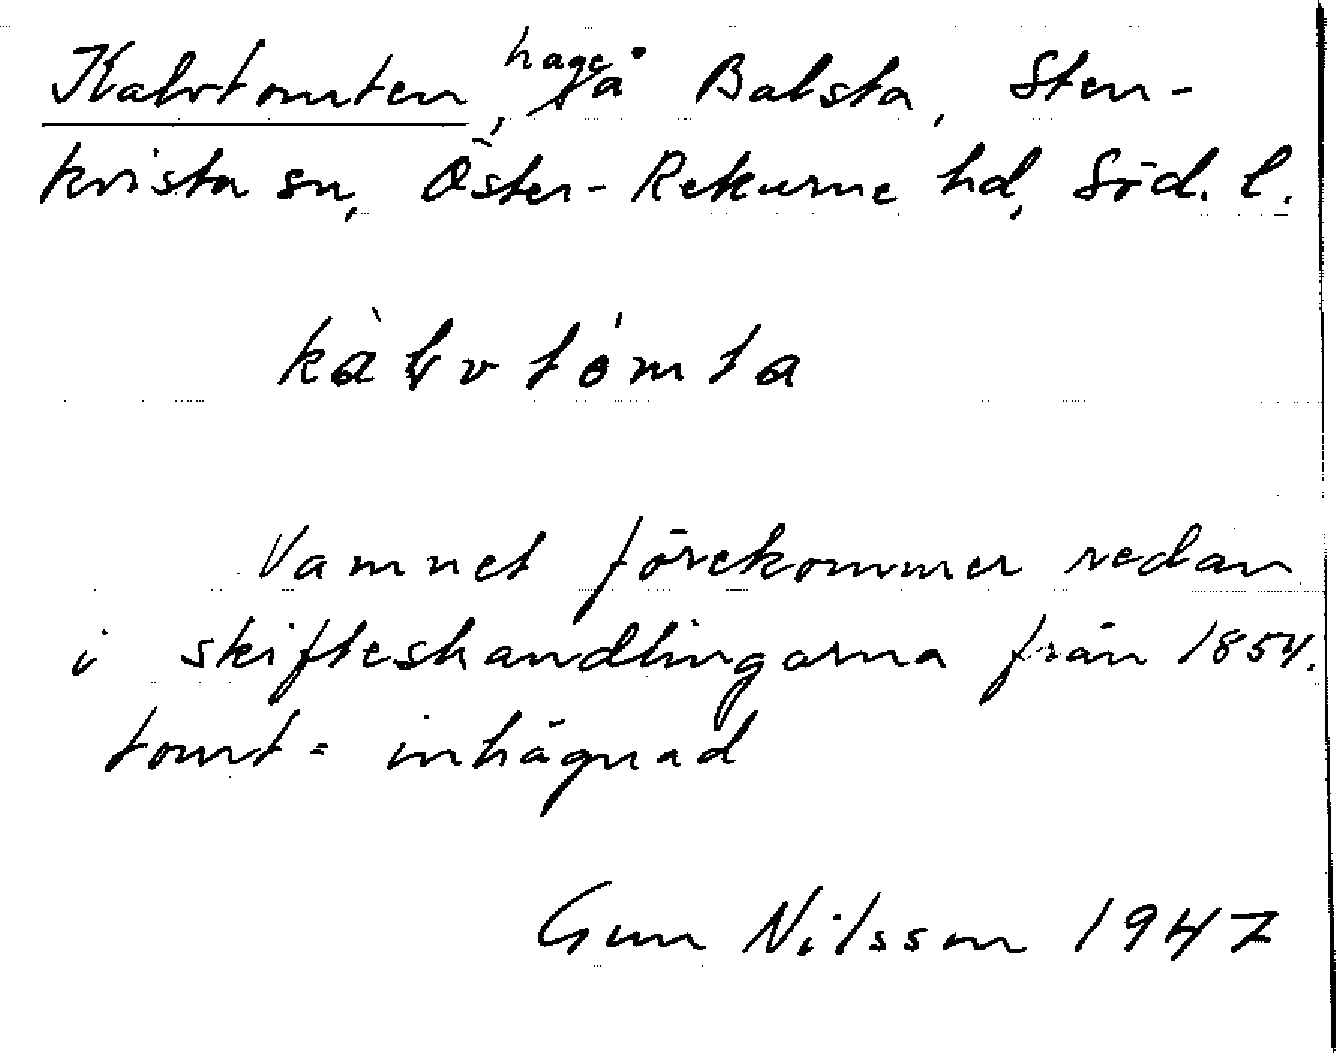 Kalvtomten, hage på Balsta, Sten-
kvista sn, Öster-Rekarne hd, Söd. l.
kàlvtómta
Namnet förekommer redan
i skifteshandlingarna från 1854.
tomt = inhägnad
Gun Nilsson 1947